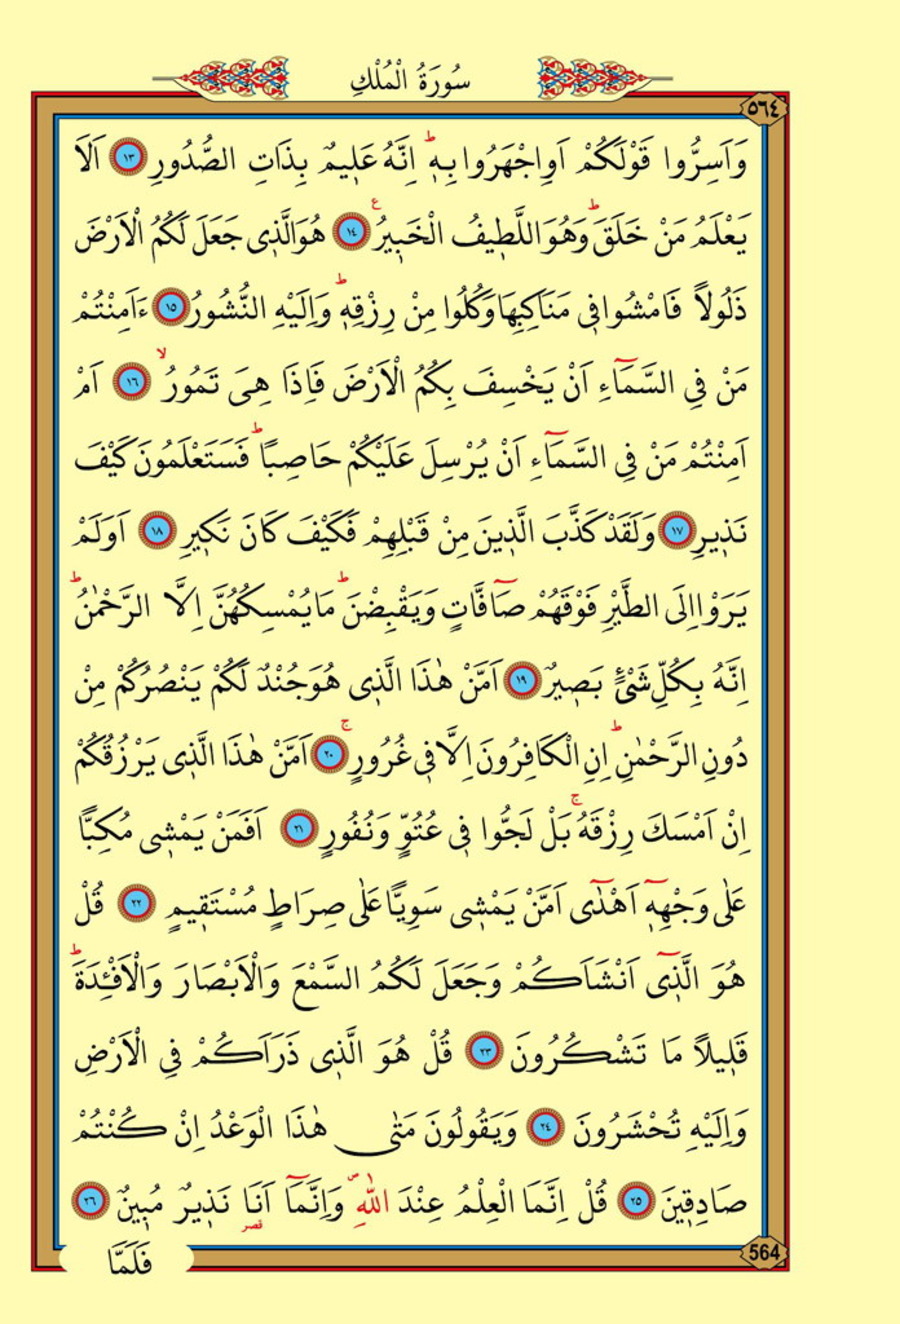 سُورَةُ الْمُلْكِ
٥٦٤
وَاَسِرُّوا قَوْلَكُمْ اَوِاجْهَرُوا بِهٖۜ اِنَّهُ عَلٖيمٌ بِذَاتِ الصُّدُورِ ﴿١٣﴾ اَلَا
يَعْلَمُ مَنْ خَلَقَۜ وَهُوَاللَّطٖيفُ الْخَبٖيرُ ﴿١٤﴾ هُوَالَّذٖى جَعَلَ لَكُمُ الْاَرْضَ
ذَلُولاً فَامْشُوا فٖى مَنَاكِبِهَا وَكُلُوا مِنْ رِزْقِهٖۜ وَاِلَيْهِ النُّشُورُ ﴿١٥﴾ ءَاَمِنْتُمْ
مَنْ فِى السَّمَٓاءِ اَنْ يَخْسِفَ بِكُمُ الْاَرْضَ فَاِذَا هِىَ تَمُورُۙ ﴿١٦﴾ اَمْ
اَمِنْتُمْ مَنْ فِى السَّمَٓاءِ اَنْ يُرْسِلَ عَلَيْكُمْ حَاصِبًاۜ فَسَتَعْلَمُونَ كَيْفَ
نَذٖيرِ ﴿١٧﴾ وَلَقَدْ كَذَّبَ الَّذٖينَ مِنْ قَبْلِهِمْ فَكَيْفَ كَانَ نَكٖيرِ ﴿١٨﴾ اَوَلَمْ
يَرَوْا اِلَى الطَّيْرِ فَوْقَهُمْ صَٓافَّاتٍ وَيَقْبِضْنَۜ مَا يُمْسِكُهُنَّ اِلَّا الرَّحْمٰنُۜ
اِنَّهُ بِكُلِّ شَىْءٍ بَصٖيرٌ ﴿١٩﴾ اَمَّنْ هٰذَا الَّذٖى هُوَ جُنْدٌ لَكُمْ يَنْصُرُكُمْ مِنْ
دُونِ الرَّحْمٰنِۜ اِنِ الْكَافِرُونَ اِلَّا فٖى غُرُورٍۚ ﴿٢٠﴾ اَمَّنْ هٰذَا الَّذٖى يَرْزُقُكُمْ
اِنْ اَمْسَكَ رِزْقَهُۚ بَلْ لَجُّوا فٖى عُتُوٍّ وَنُفُورٍ ﴿٢١﴾ اَفَمَنْ يَمْشٖى مُكِبًّا
عَلٰى وَجْهِهٖٓ اَهْدٰٓى اَمَّنْ يَمْشٖى سَوِيًّا عَلٰى صِرَاطٍ مُسْتَقٖيمٍ ﴿٢٢﴾ قُلْ
هُوَ الَّذٖٓى اَنْشَاَكُمْ وَجَعَلَ لَكُمُ السَّمْعَ وَالْاَبْصَارَ وَالْاَفْـِٔدَةَۜ
قَلٖيلاً مَا تَشْكُرُونَ ﴿٢٣﴾ قُلْ هُوَ الَّذٖى ذَرَاَكُمْ فِى الْاَرْضِ
وَاِلَيْهِ تُحْشَرُونَ ﴿٢٤﴾ وَيَقُولُونَ مَتٰى هٰذَا الْوَعْدُ اِنْ كُنْتُمْ
صَادِقٖينَ ﴿٢٥﴾ قُلْ اِنَّمَا الْعِلْمُ عِنْدَ اللّٰهِ وَاِنَّمَٓا اَنَا۬ نَذٖيرٌ مُبٖينٌ ﴿٢٦﴾
قصر
564
فَلَمَّا